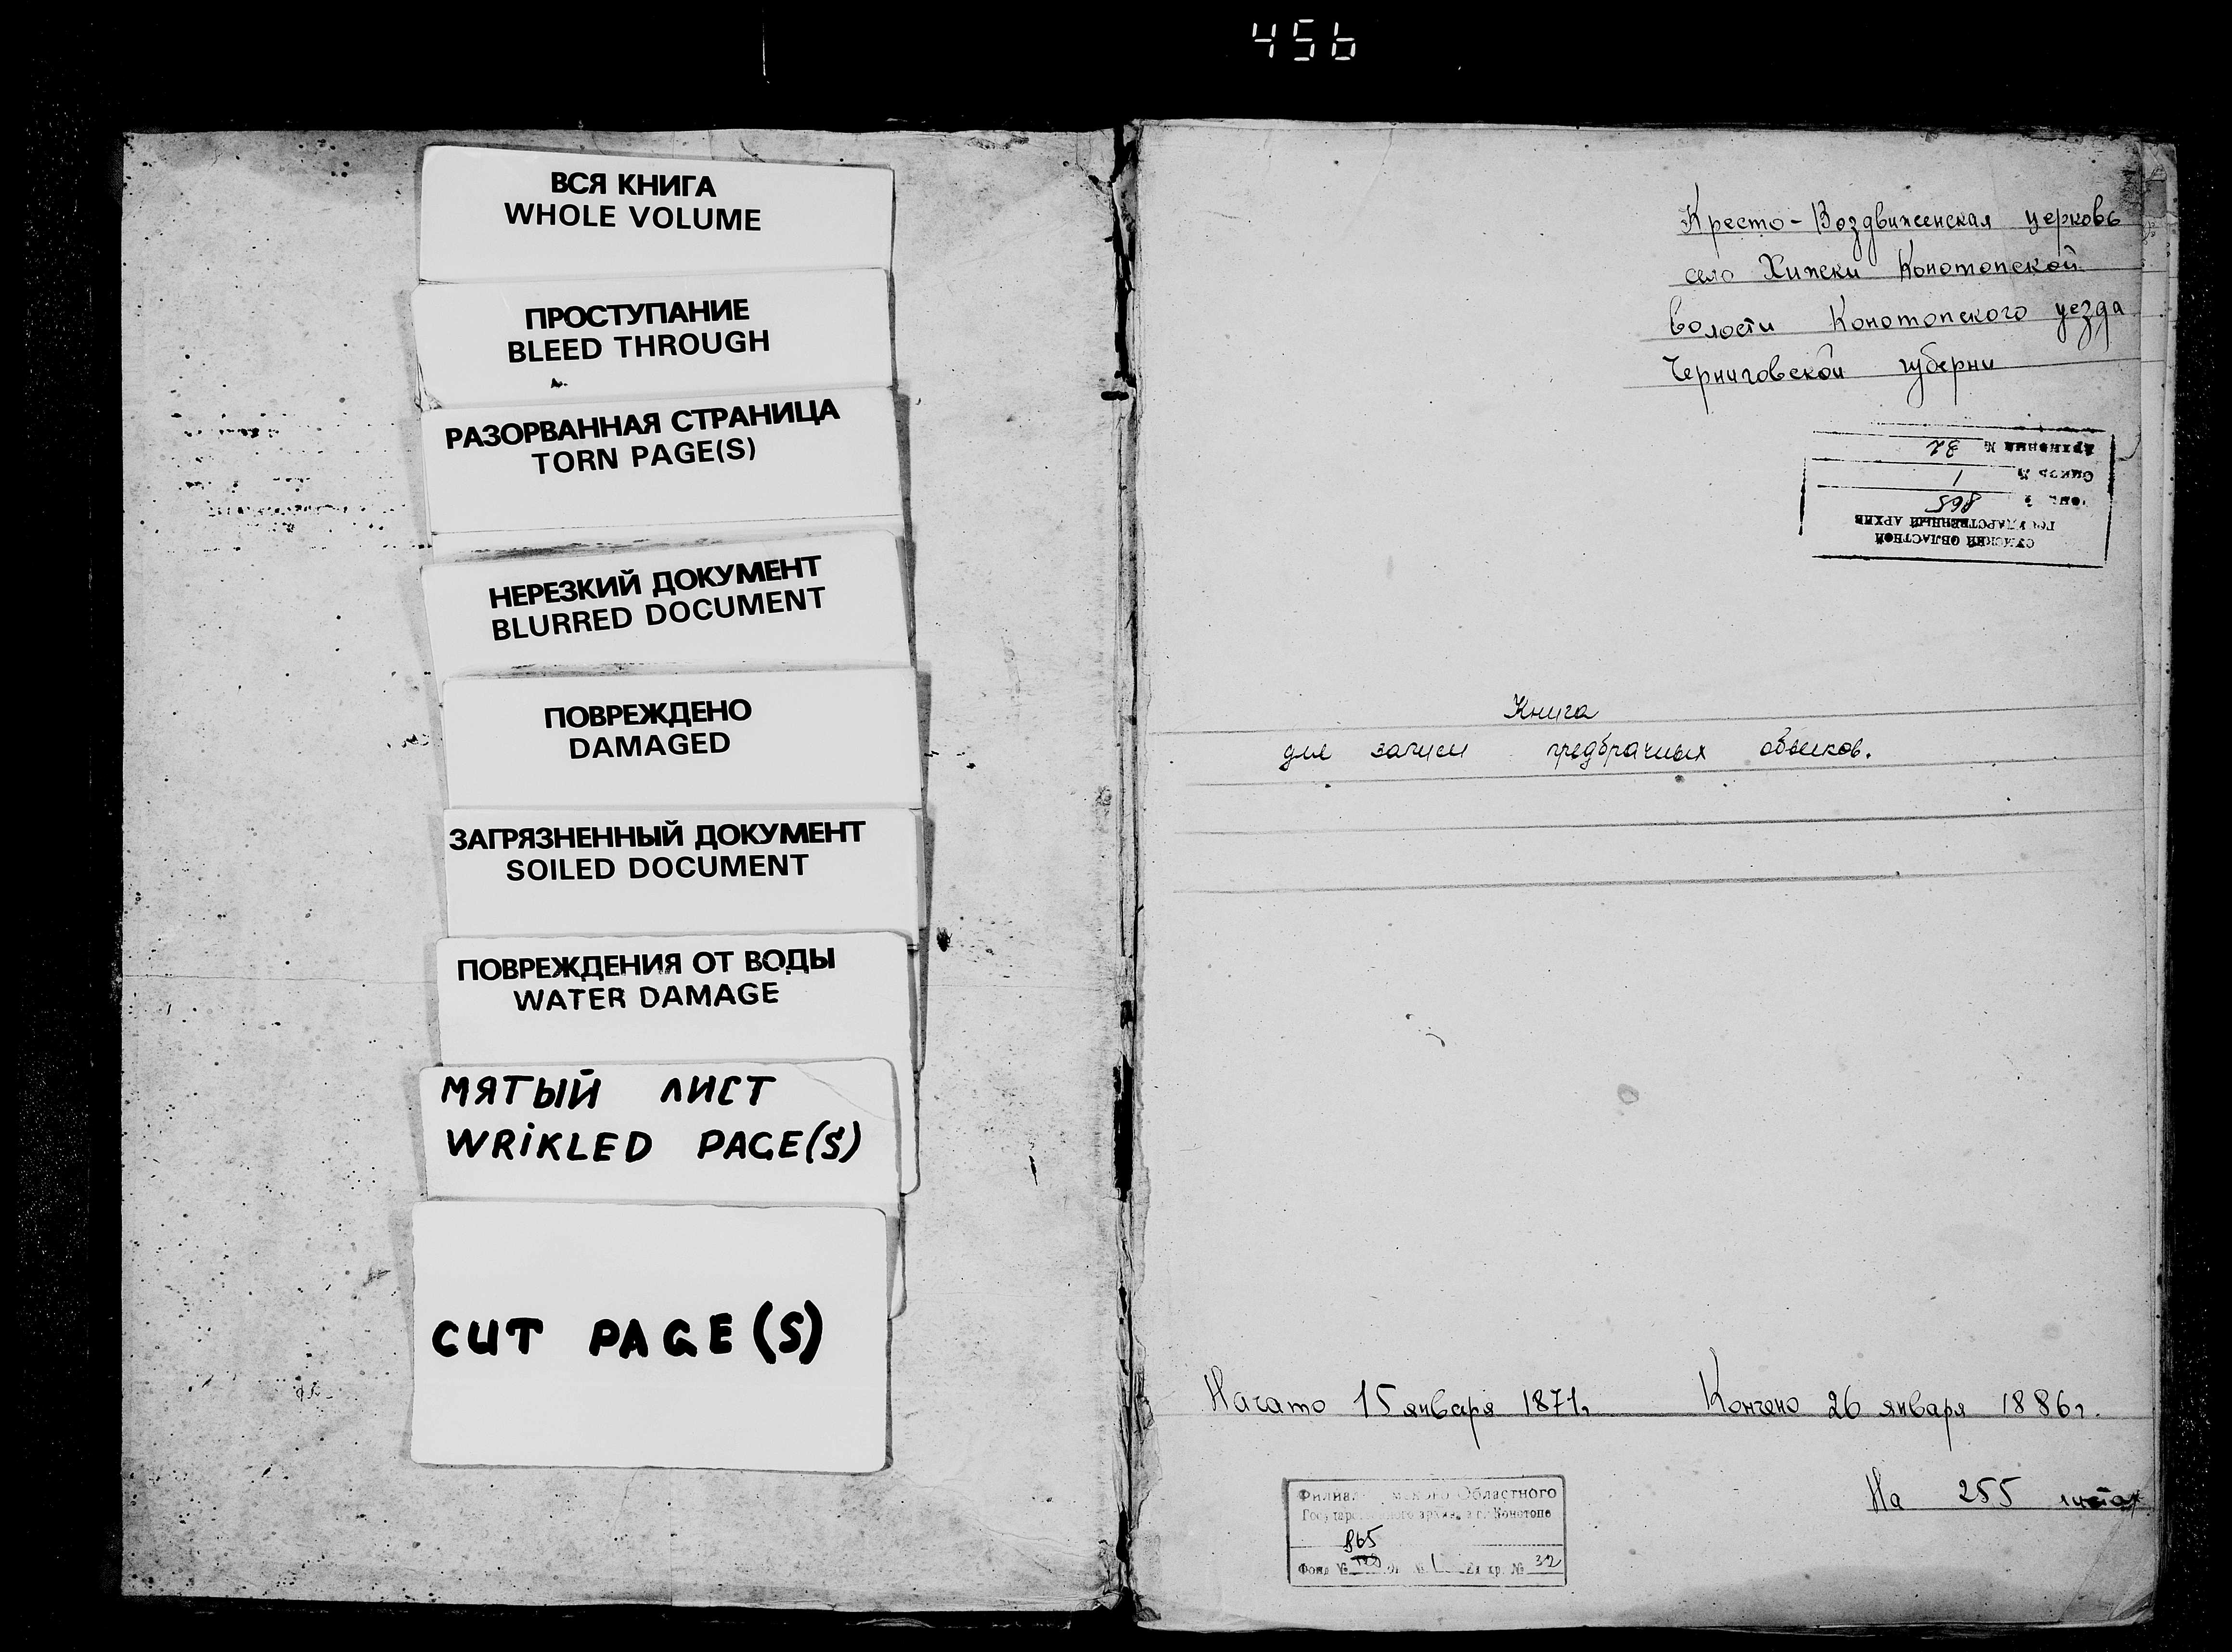 456
ВСЯ КНИГА
WHOLE VOLUME
ПРОСТУПАНИЕ
BLEED THROUGH
РАЗОРВАННАЯ СТРАНИЦА
TORN PAGE(S)
НЕРЕЗКИЙ ДОКУМЕНТ
BLURRED DOCUMENT
ПОВРЕЖДЕНО
DAMAGED
ЗАГРЯЗНЕННЫЙ ДОКУМЕНТ
SOILED DOCUMENT
ПОВРЕЖДЕНИЯ ОТ ВОДЫ
WATER DAMAGE
МЯТЫЙ ЛИСТ
WRiKLED PAGE(S)
CUT PAGE(S)
Кресто-Воздвиженская церковь
село Хижки Конотопской
волости Конотопского уезда
Черниговской губерни
СУМСКИЙ ОБЛАСТНОЙ
ГОСУДАРСТВЕННЫЙ АРХИВ
865
Опись № 1
Архивный № 32
Книга
для записи предбрачных обысков.
Начато 15 января 1871г. Кончено 26 января 1886г.
На 255 листах
Филиал Областного
архива в г. Конотопе
865
Фонд № 1 Ед. хр. № 32